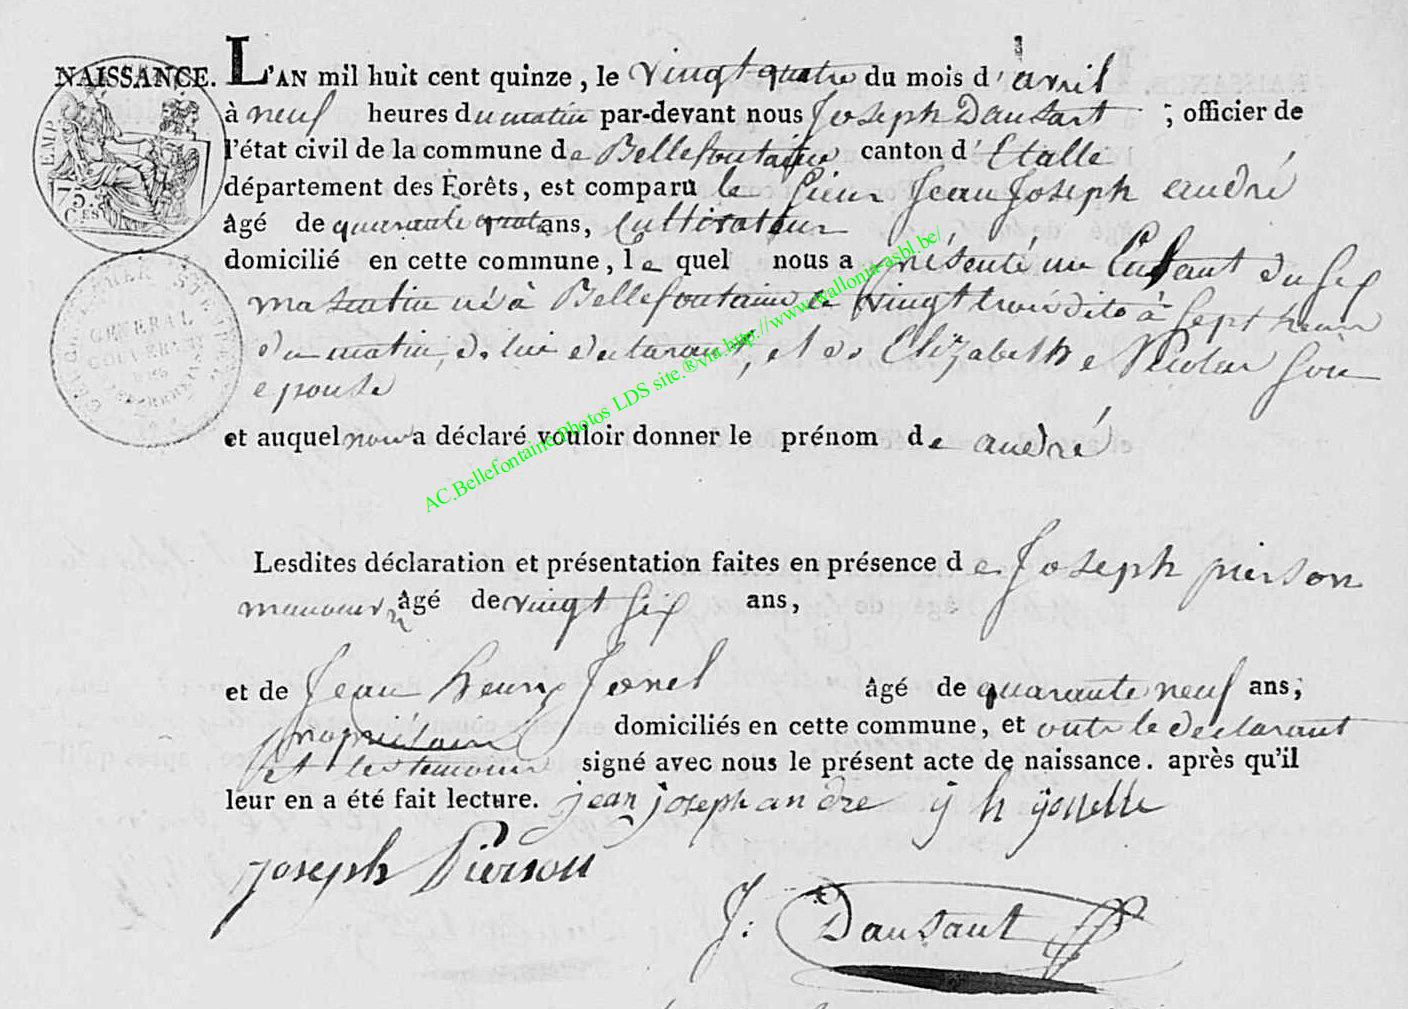 NAISSANCE. L'AN mil huit cent quinze, le vingt quatre du mois d'avril
à neuf heures du matin par-devant nous Joseph Dausart ; officier de
l'état civil de la commune de Bellefontaine canton d'Etalle
département des Forêts, est comparu le sieur Jean Joseph andré
âgé de quarante quatre ans, Cultivateur
domicilié en cette commune, le quel nous a présenté un Enfant du sex
masculin né à Bellefontaine le vingt trois dito à sept heures
du matin, de lui declarant, et de Elizabethe Nicolas son
epouse
et auquel nous a déclaré vouloir donner le prénom de andré
AC.Bellefontaine.Photos LDS site.®via.http://www.wallonia-asbl.be/
Lesdites déclaration et présentation faites en présence de Joseph pierson
manoeuvre âgé de vingt six ans,
et de Jean henry Jonel âgé de quarante neuf ans,
propriétaire domiciliés en cette commune, et outre le declarant
et les temoins signé avec nous le présent acte de naissance. après qu'il
leur en a été fait lecture. jean joseph andre ÿ h ÿonelle
Joseph Pierson
J: Dausart
EMP.
75.
C.ES